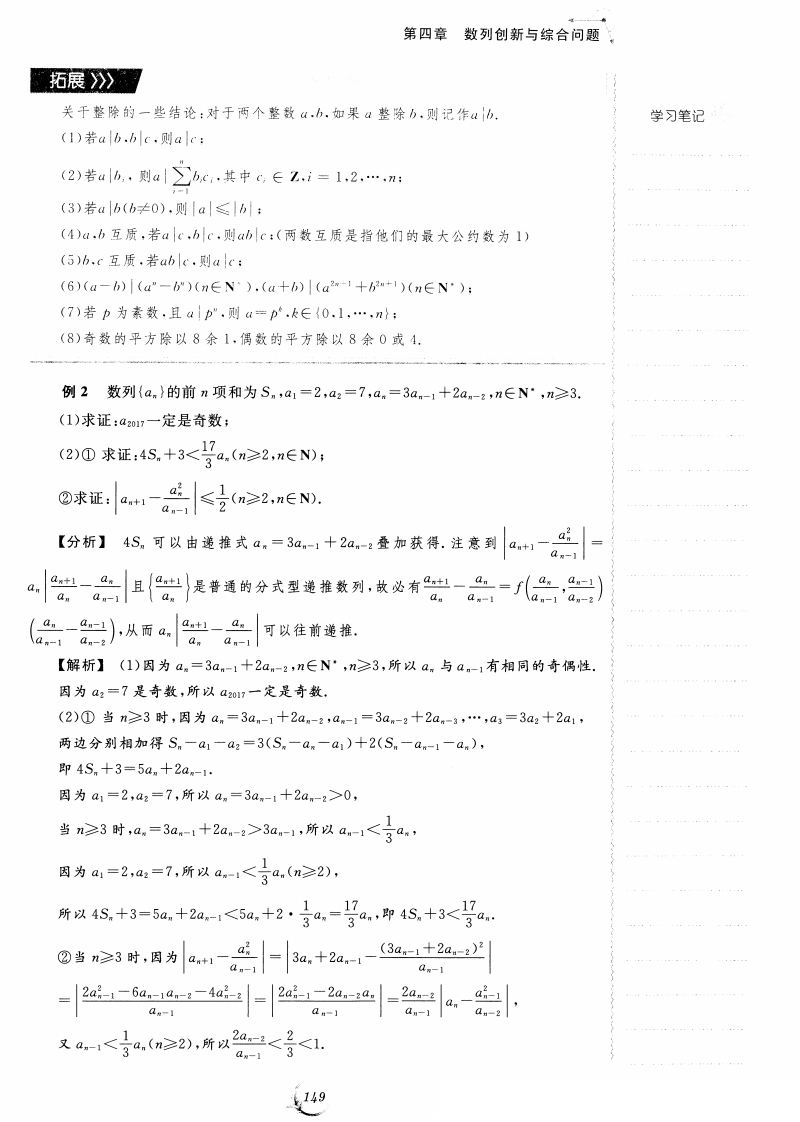 第四章 数列创新与综合问题
拓展>>>
关于整除的一些结论:对于两个整数 a,b,如果 a 整除 b,则记作a|b.
学习笔记
(1)若a|b,b|c,则a|c;
(2)若a|bᵢ, 则a|∑ⁿᵢ₌₁bᵢcᵢ,其中 cᵢ ∈ Z,i = 1,2,…,n;
(3)若a|b(b≠0),则|a|≤|b|;
(4)a,b 互质,若a|c,b|c,则ab|c;(两数互质是指他们的最大公约数为 1)
(5)b,c 互质,若ab|c,则a|c;
(6)(a−b)|(aⁿ−bⁿ)(n∈N*),(a+b)|(a²ⁿ⁻¹+b²ⁿ⁺¹)(n∈N*);
(7)若 p 为素数,且 a|pⁿ,则 a=pᵏ,k∈{0,1,…,n};
(8)奇数的平方除以 8 余 1,偶数的平方除以 8 余 0 或 4.
例 2 数列{aₙ}的前 n 项和为 Sₙ,a₁=2,a₂=7,aₙ=3aₙ₋₁+2aₙ₋₂,n∈N*,n≥3.
(1)求证:a₂₀₁₇一定是奇数;
(2)① 求证:4Sₙ+3<17/3 aₙ(n≥2,n∈N);
②求证:|aₙ₊₁−aₙ²/aₙ₋₁|≤1/2(n≥2,n∈N).
【分析】 4Sₙ 可以由递推式 aₙ=3aₙ₋₁+2aₙ₋₂ 叠加获得.注意到|aₙ₊₁−aₙ²/aₙ₋₁|=
aₙ|aₙ₊₁/aₙ−aₙ/aₙ₋₁|且{aₙ₊₁/aₙ}是普通的分式型递推数列,故必有aₙ₊₁/aₙ−aₙ/aₙ₋₁=f(aₙ/aₙ₋₁,aₙ₋₁/aₙ₋₂)
(aₙ/aₙ₋₁−aₙ₋₁/aₙ₋₂),从而 aₙ|aₙ₊₁/aₙ−aₙ/aₙ₋₁|可以往前递推.
【解析】 (1)因为 aₙ=3aₙ₋₁+2aₙ₋₂,n∈N*,n≥3,所以 aₙ 与 aₙ₋₁有相同的奇偶性.
因为 a₂=7 是奇数,所以 a₂₀₁₇一定是奇数.
(2)① 当 n≥3 时,因为 aₙ=3aₙ₋₁+2aₙ₋₂,aₙ₋₁=3aₙ₋₂+2aₙ₋₃,…,a₃=3a₂+2a₁,
两边分别相加得 Sₙ−a₁−a₂=3(Sₙ−aₙ−a₁)+2(Sₙ−aₙ₋₁−aₙ),
即 4Sₙ+3=5aₙ+2aₙ₋₁.
因为 a₁=2,a₂=7,所以 aₙ=3aₙ₋₁+2aₙ₋₂>0,
当 n≥3 时,aₙ=3aₙ₋₁+2aₙ₋₂>3aₙ₋₁,所以 aₙ₋₁<1/3 aₙ,
因为 a₁=2,a₂=7,所以 aₙ₋₁<1/3 aₙ(n≥2),
所以 4Sₙ+3=5aₙ+2aₙ₋₁<5aₙ+2·1/3 aₙ=17/3 aₙ,即 4Sₙ+3<17/3 aₙ.
②当 n≥3 时,因为|aₙ₊₁−aₙ²/aₙ₋₁|=|3aₙ+2aₙ₋₁−(3aₙ₋₁+2aₙ₋₂)²/aₙ₋₁|
=|(2aₙ₋₁²−6aₙ₋₁aₙ₋₂−4aₙ₋₂²)/aₙ₋₁|=|(2aₙ₋₁²−2aₙ₋₂aₙ)/aₙ₋₁|=2aₙ₋₂/aₙ₋₁|aₙ−aₙ₋₁²/aₙ₋₂|,
又 aₙ₋₁<1/3 aₙ(n≥2),所以2aₙ₋₂/aₙ₋₁<2/3<1.
149